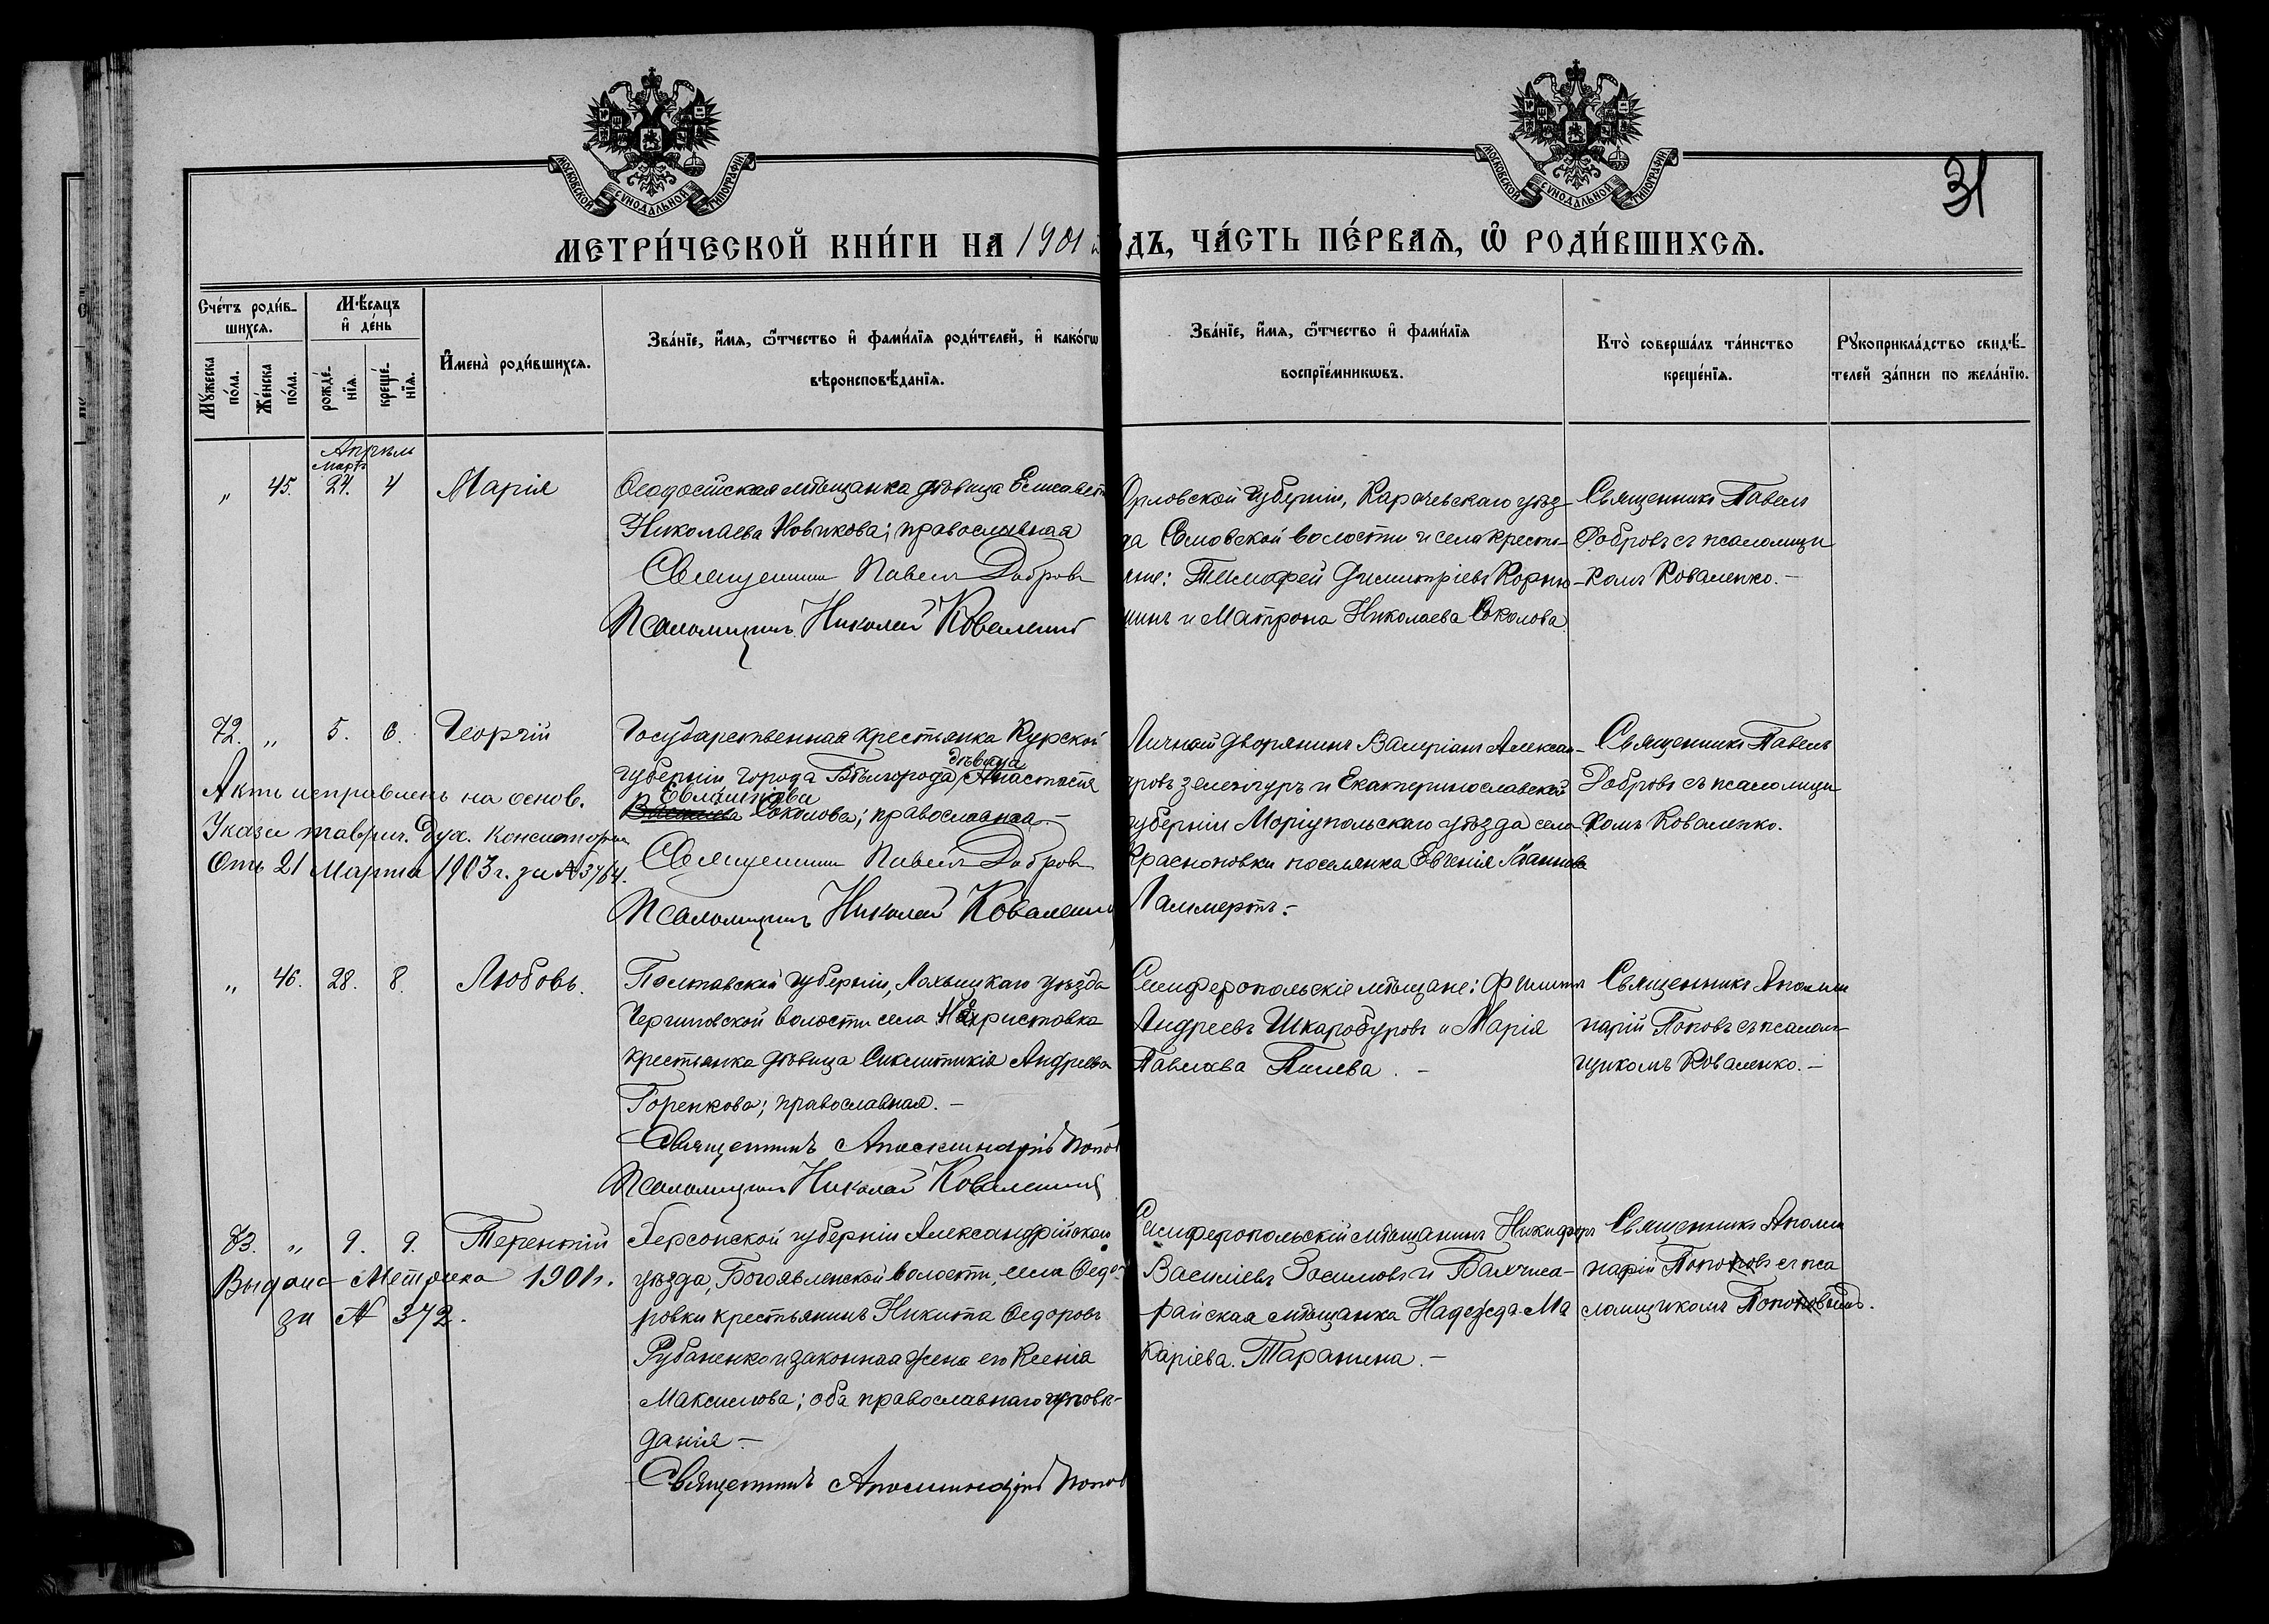 МОСКОВСКОЙ СѴНОДАЛЬНОЙ ТИПОГРАФІИ
МОСКОВСКОЙ СѴНОДАЛЬНОЙ ТИПОГРАФІИ
31
МЕТРИ́ЧЕСКОЙ КНИ́ГИ НА 1901
ДЪ, ЧА́СТЬ ПЕ́РВАѦ, Ѡ҆ РОДИ́ВШИХСѦ.
Сче́тъ роди́в-
шихсѧ.
Мꙋ́жеска по́ла.
Же́нска по́ла.
Мѣ́сѧцъ
и҆ де́нь
рожде́-нїѧ.
креще́-нїѧ.
И҆мена̀ роди́вшихсѧ.
Зва́нїе, и҆́мѧ, ѻ҆́тчество и҆ фами́лїѧ роди́телей, и҆ како́гѡ
вѣроисповѣ́данїѧ.
Зва́нїе, и҆́мѧ, ѻ҆́тчество и҆ фами́лїѧ
воспрїе́мникѡвъ.
Кто̀ соверша́лъ та́инство
креще́нїѧ.
Рꙋкоприкла́дство свидѣ́-
телей за́писи по жела́нїю.
Апрѣль
Мартъ
" 45. 24. 4 Марія
Ѳеодосійская мѣщанка дѣвица Елисавета
Николаева Новикова; православная
Священникъ Павелъ Добровъ
Псаломщикъ Николай Коваленко
Орловской губерніи, Карачевскаго уѣз-
да волости и села крестья-
яне: Тимофей Димитріевъ Корню-
шинъ и Матрона Николаева Соколова
Священникъ Павелъ
Добровъ съ псаломщи
комъ Коваленко.-
72. " 5. 6. Георгій
Актъ исправленъ на основ.
Указа таврич. Дух. Консистории
Отъ 21 Марта 1903 г. за № 3764.
Государственная крестьянка Курской
дѣвица
губерніи города Бѣлгорода Анастасія
Евлампіева
Васильева Соколова; православная.-
Священникъ Павелъ Добровъ
Псаломщикъ Николай Коваленко
Личной дворянинъ Валеріанъ Алексан-
дровъ Зеленгуръ и Екатеринославской
губерніи Моріупольскаго уѣзда села
Красноповки поселянка Евгенія Іоаннова
Ламмертъ.-
Священникъ Павелъ
Добровъ съ псаломщи
комъ Коваленко.
" 46. 28. 8. Любовь.
Полтавской губерніи, Лохвицкаго уѣзда
волости села
крестьянка дѣвица Синклитикія Андреева
Горенкова; православная.-
Священникъ Аполлинарій Поповъ
Псаломщикъ Николай Коваленко
Симферопольскіе мѣщане: Филиппъ
Андреевъ Шкаробуровъ и Марія
Павлова .-
Священникъ Аполли
нарій Поповъ съ псалом-
щикомъ Коваленко.-
73. " 9. 9. Терентій
Выдана Метрика 1901 г.
за № 372.
Херсонской губерніи Александрійскаго
уѣзда, Богоявленской волости, села Ѳедо-
ровки крестьянинъ Никита Ѳедоровъ
Рубаненко и законная жена его Ксенія
Максимова; оба православнаго исповѣ-
данія.-
Священникъ Аполлинарій Поповъ
Симферопольскій мѣщанинъ Никифоръ
Василіевъ Зосимовъ и Бахчиса-
райская мѣщанка Надежда Ма
каріева Таранина.-
Священникъ Аполли
нарій Поповъ съ пса
ломщикомъ Поповымъ.